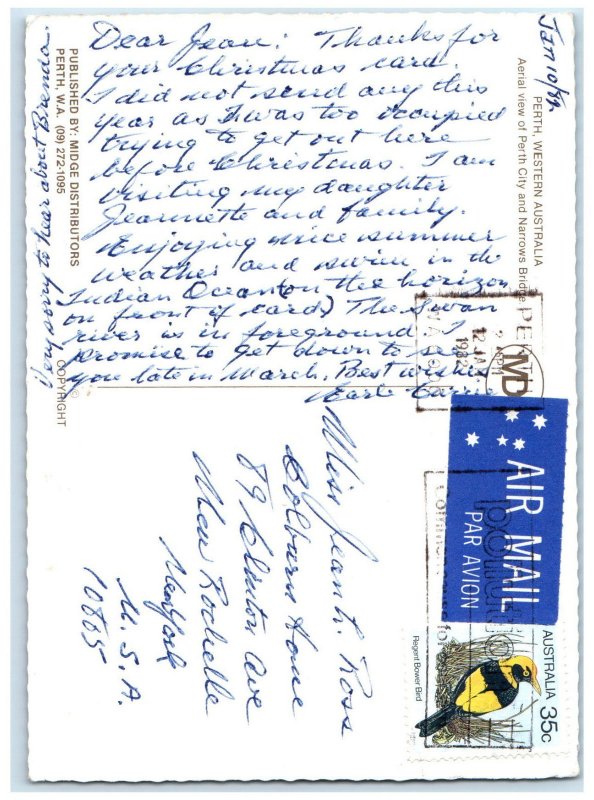 Jan 10/82
Dear Jean: Thanks for
your Christmas card.
I did not send any this
year as I was too occupied
trying to get out here
before Christmas. I am
visiting my daughter
Jeannette and family.
Enjoying nice summer
weather and swim in the
Indian Ocean (on the horizon
on front of card) The Swan
river is in foreground. I
promise to get down to see
you late in March. Best wishes
Earle
Very sorry to hear about Brenda.
PUBLISHED BY: MIDGE DISTRIBUTORS
PERTH, W.A. (09) 272-1095
COPYRIGHT ©
PERTH, WESTERN AUSTRALIA
Aerial view of Perth City and Narrows Bridge
Miss Jean L. Ross
Colburn Home
89 Clinton Ave
New Rochelle
New York
U.S.A.
10805
PERTH
12 JA
1982
MD
AIR MAIL
PAR AVION
AUSTRALIA
35c
Regent Bower Bird